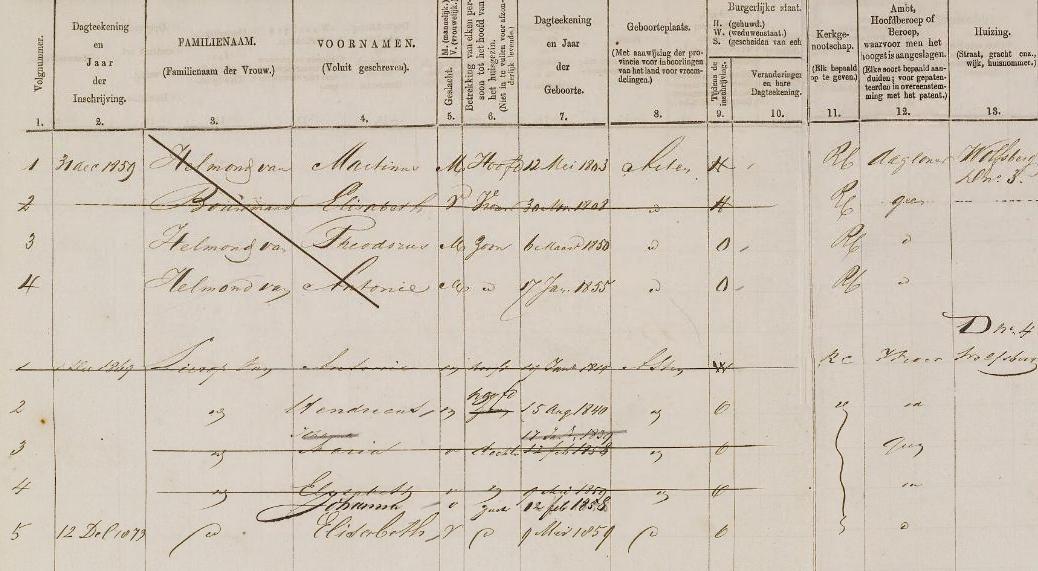 Volgnummer.
Dagteekening en Jaar der Inschrijving.
FAMILIENAAM. (Familienaam der Vrouw.)
VOORNAMEN. (Voluit geschreven).
Geslacht. M. (mannelijk.) V. (vrouwelijk.)
Betrekking van elken persoon tot het hoofd van het huisgezin. (Niet in te vullen voor afzonderlijk levende.)
Dagteekening en Jaar der Geboorte.
Geboorteplaats. (Met aanwijzing der provincie voor inboorlingen van het land voor vreemdelingen.)
Burgerlijke staat.
H. (gehuwd.)
W. (weduwenstaat.)
S. (gescheiden van echt
Tijdens de inschrijving.
Veranderingen en hare Dagteekening.
Kerkgenootschap. (Elk bepaald op te geven.)
Ambt, Hoofdberoep of Beroep, waarvoor men het hoogst is aangeslagen. (Elke soort bepaald aanduiden; voor gepatenteerden in overeenstemming met het patent.)
Huizing. (Straat, gracht enz., wijk, huisnommer.)
1. 2. 3. 4. 5. 6. 7. 8. 9. 10. 11. 12. 13.
1 31 dec 1859 Helmond van Martinus M Hoofd 12 Mei 1803 Asten H RC daglooner Wolfsberg
D no. 3.
2 Elisabeth V Vrouw 1808 " H RC geen
3 Helmond van Theodorus M Zoon 6 Maart 1850 " O RC "
4 Helmond van Antonie M " 17 Jan. 1855 " O RC "
D no. 4
1 1859 Antonie m hoofd Asten W RC Wolfsberg
2 Hendricus hoofd 15 Aug 1840 O
3 Maria v docht. 12 feb 1858 O geen
4 Elisabeth v 9 Mei 1859 O
Johanna v 12 feb 1858
5 12 1873 Elisabeth V 9 Mei 1859 O